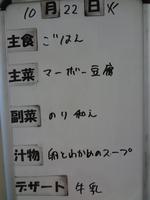 10月22日火
主食 ごはん
主菜 マーボー豆腐
副菜 のり和え
汁物 卵とわかめのスープ
デザート 牛乳